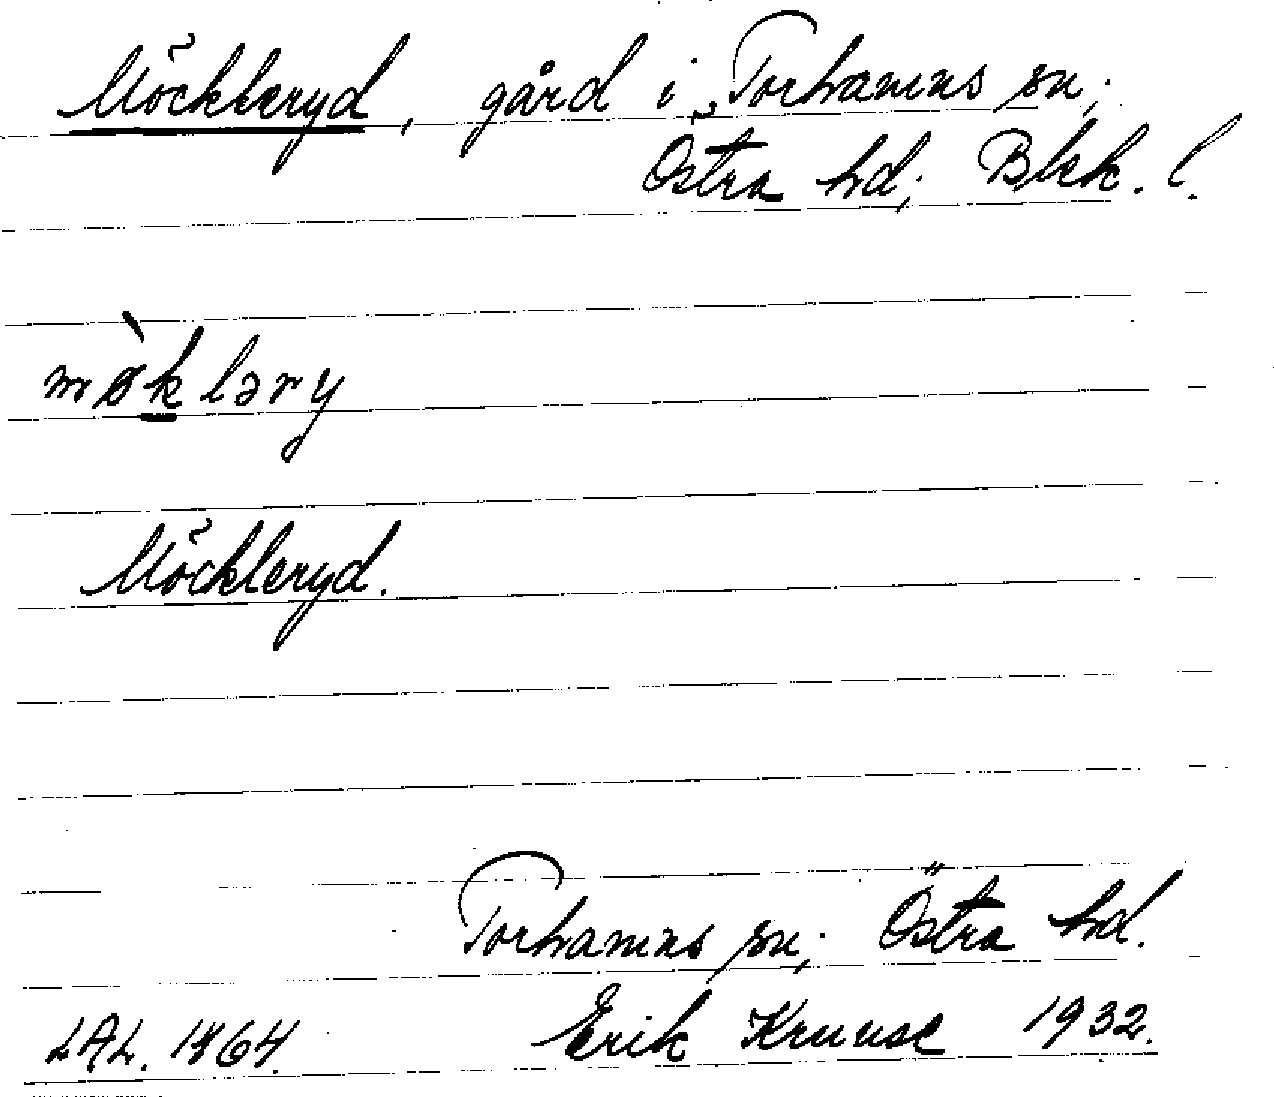 Möckleryd, gård i Torhamns sn;
Östra hd; Blek. l.
mø̀kləry
Möckleryd.
Torhamns sn; Östra hd.
LAL. 1464. Erik Kruuse 1932.